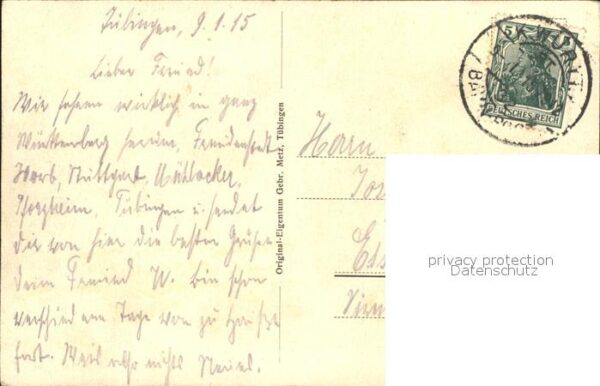 Tübingen, 9.1.15
Lieber Freund!
Wir fahren wirklich in ganz
Württemberg herum, Freudenstadt
Horb, Stuttgart, Mühlacker,
Pforzheim, Tübingen u. sendet
dir von hier die besten Grüße
dein Freund W. bin schon
verschiedene Tage von zu Hause
fort. Weis nichts Neues.
Original-Eigentum Gebr. Metz, Tübingen
5
DEUTSCHES REICH
K.WÜRTT.
Herrn
privacy protection
Datenschutz